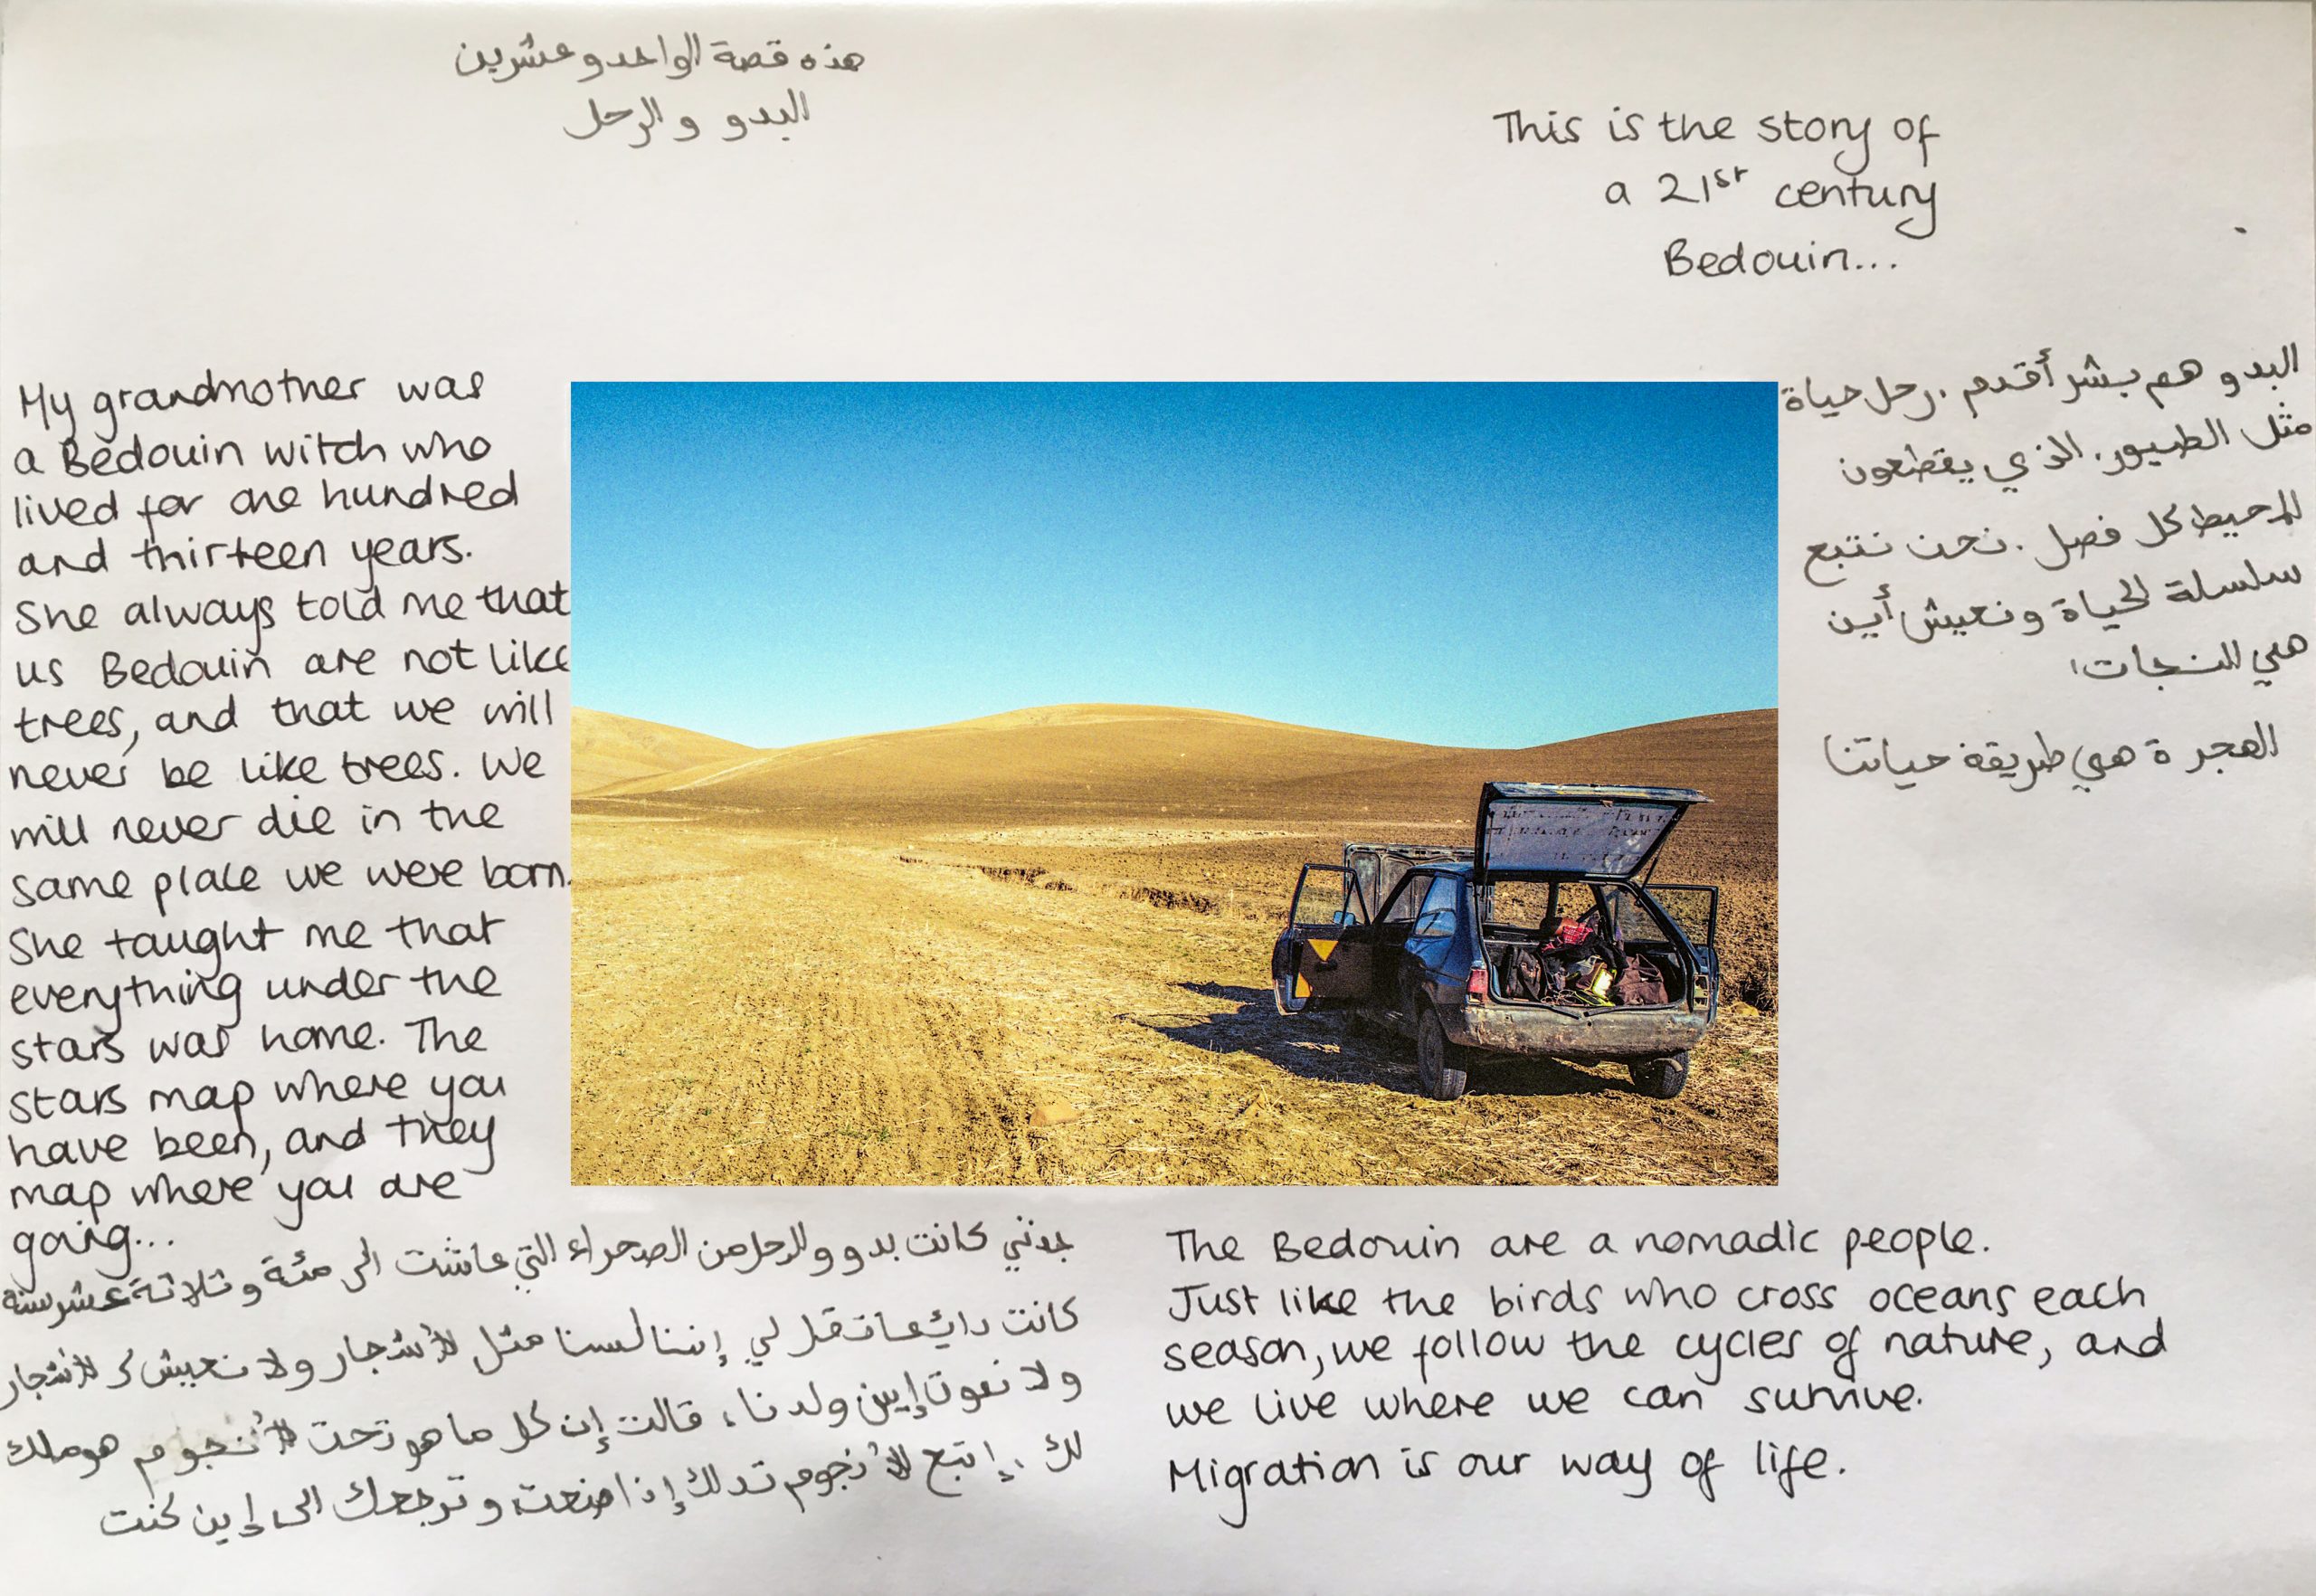 هذه قصة الواحد و عشرين
البدو و الرحل
This is the story of
a 21st century
Bedouin...
My grandmother was
a Bedouin witch who
lived for one hundred
and thirteen years.
She always told me that
us Bedouin are not like
trees, and that we will
never be like trees. We
will never die in the
same place we were born.
She taught me that
everything under the
stars was home. The
stars map where you
have been, and they
map where you are
going...
البدو هم بشر أقدم. رحل حياة
مثل الطيور. الذي يقطعون
المحيط كل فصل. نحن نتبع
سلسلة الحياة و نعيش أين
هي النجات
الهجرة هي طريقة حياتنا
جدتي كانت بدو و الرحل من الصحراء التي عاشت الى مئة و ثلاثة عشر سنة
كانت لي إننا لسنا مثل الأشجار ولا نعيش ك الأشجار
ولا نموت إين ولدنا، قالت إن كل ما هو تحت الأنجوم هو ملك
لك. إتبع الأنجوم تدلك إذا ضعت و ترجعك الى إين كنت
The Bedouin are a nomadic people.
Just like the birds who cross oceans each
season, we follow the cycles of nature, and
we live where we can survive.
Migration is our way of life.